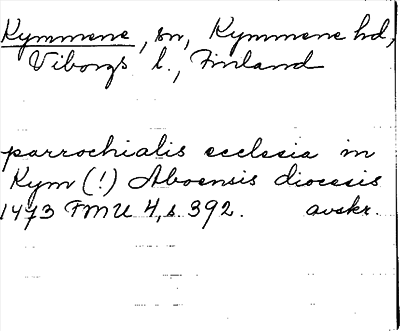 Kymmene, sn, Kymmene hd,
Viborgs l., Finland
parrochialis ecclesia in
Kym (!) Aboensis diocesis
1473 FMU 4, s. 392. avskr.